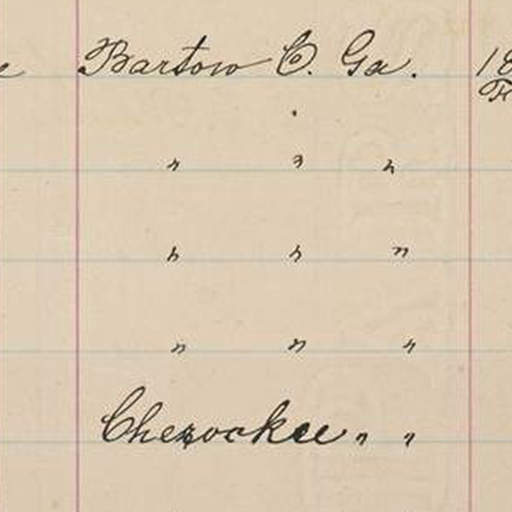 Bartow C. Ga. 18
" " "
" " "
" " "
Cherockee " "